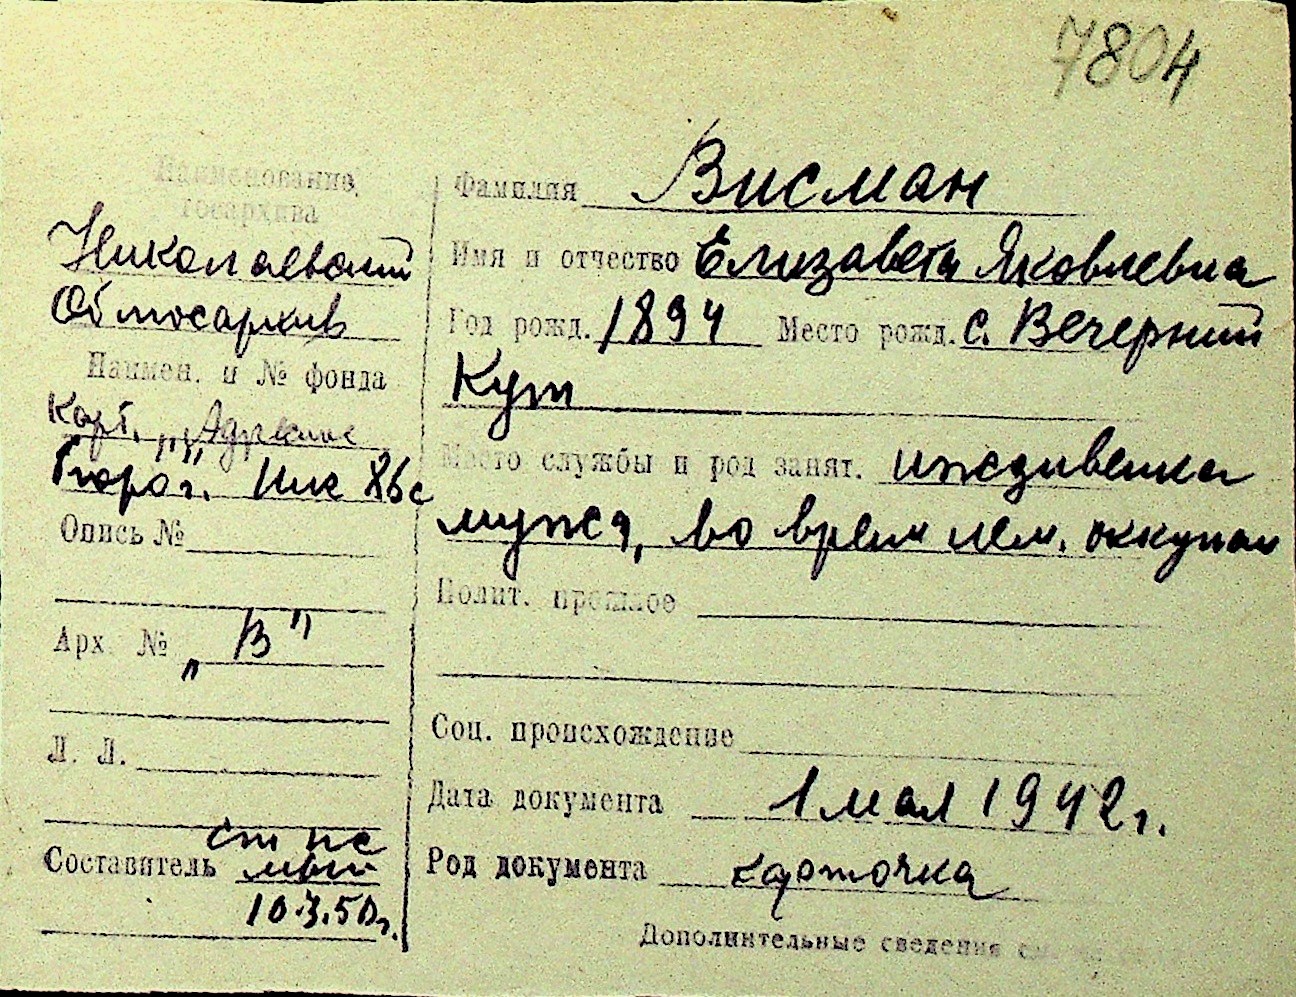 7804
Наименование
госархива
Николаевский
Облгосархив
Наимен. и № фонда
Карт. „Адресное
бюро г. Ник
Опись №
Арх. № „В"
Л. Л.
Составитель
10.3.50г.
Фамилия Висман
Имя и отчество Елизавета Яковлевна
Год рожд. 1894 Место рожд. с. Вечерний
Кут
Место службы и род занят. иждивенка
мужа, во время нем. оккупац
Полит. прошлое
Соц. происхождение
Дата документа 1 мая 1942г.
Род документа карточка
Дополнительные сведения